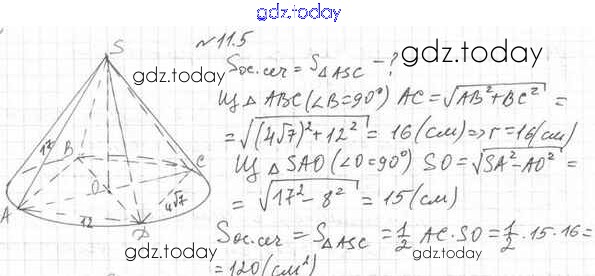 gdz.today
№11.5
gdz.today
gdz.today
Sос.сеч = S△ASC - ?
Из △ABC (∠B=90°) AC = √AB²+BC² =
= √(4√7)²+12² = 16 (см) => r=16(см)
Из △SAO (∠O=90°) SO = √SA²-AO² =
= √17²-8² = 15 (см)
Sос.сеч = S△ASC = 1/2 AC·SO = 1/2·15·16 =
= 120 (см²)
S
17
B
C
O
A
12
D
4√7
gdz.today
gdz.today